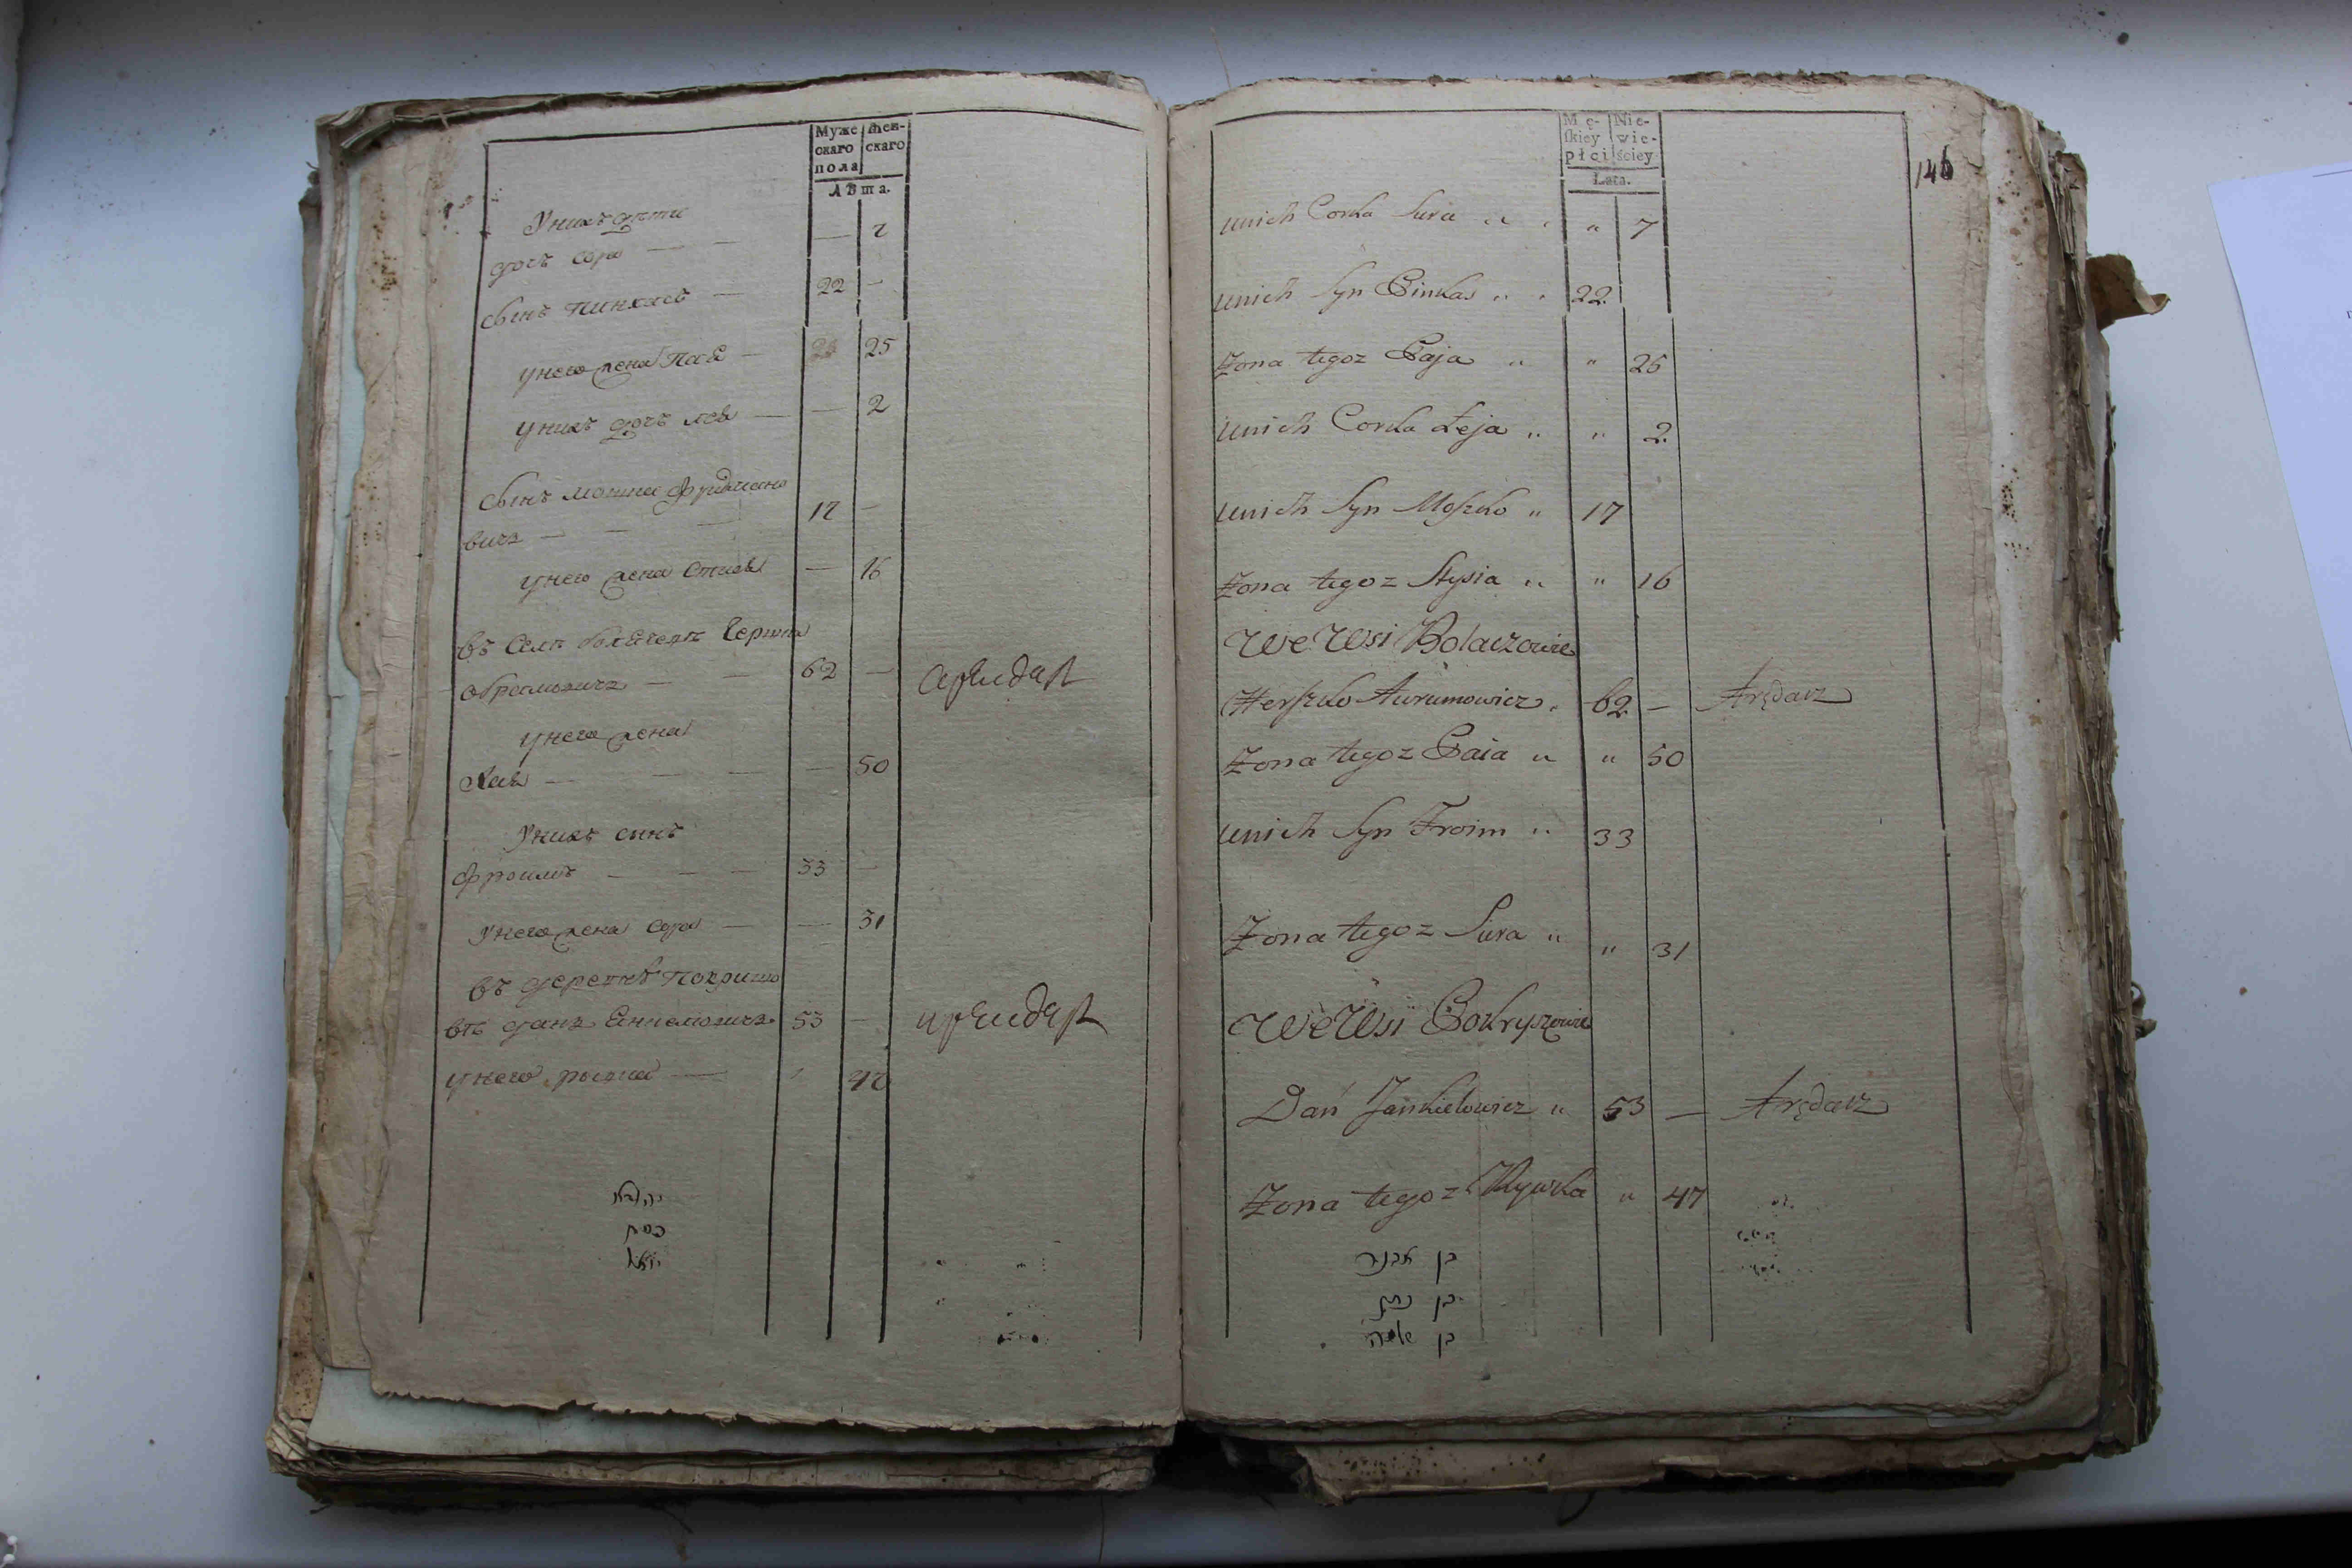 Муже
скаго
пола
жен-
скаго
Лѣта.
У нихъ дѣти
дочъ Сора — — — 7
сынъ Пинхасъ — 22 —
у него жена Пая — 25
у нихъ дочъ Лея — — 2
сынъ Мошка Фридмано
вичъ — — — 17 —
у него жена Стися — 16
въ селѣ Болячевѣ Гершко
Абрамовичъ — — 62 — арендарь
у него жена
Хая — — — — 50
У нихъ сынъ
Фроимъ — — — 33 —
У него жена Сора — — 31
въ деревнѣ Покришо
вѣ Данъ Янкелювичъ 53 — арендарь
у него 47
Mę-
ſkiey
płci
Nie-
wie-
ściey
Lata.
146
unich Corka Sura " " " 7
unich Syn Pinkas " " 22
Zona tegoz Paja " " 25
unich Corka Leja " " 2
unich Syn Moszko " 17
Zona tegoz Stysia " " 16
We Wsi Bolaczowie
Herszko Aurumowicz " 62 — Arędarz
Zona tegoz Chaia " " 50
unich Syn Froim " 33
Zona tegoz Sura " " 31
We Wsi Pokryszowie
Dań Jankielowicz " 53 — Arędarz
Zona tegoz Rywka " 47
בן אבנר
בן נתן
בן שלמה